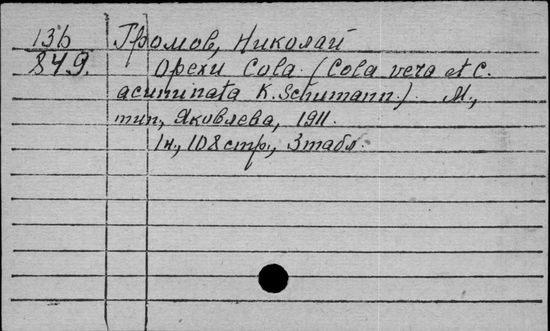 13b Громов, Николай
849. Орехи Cola. (Cola vera et C.
acuminata K. Schumann.) М.,
тип, Яковлева, 1911.
1н, 108 стр., 3 табл.